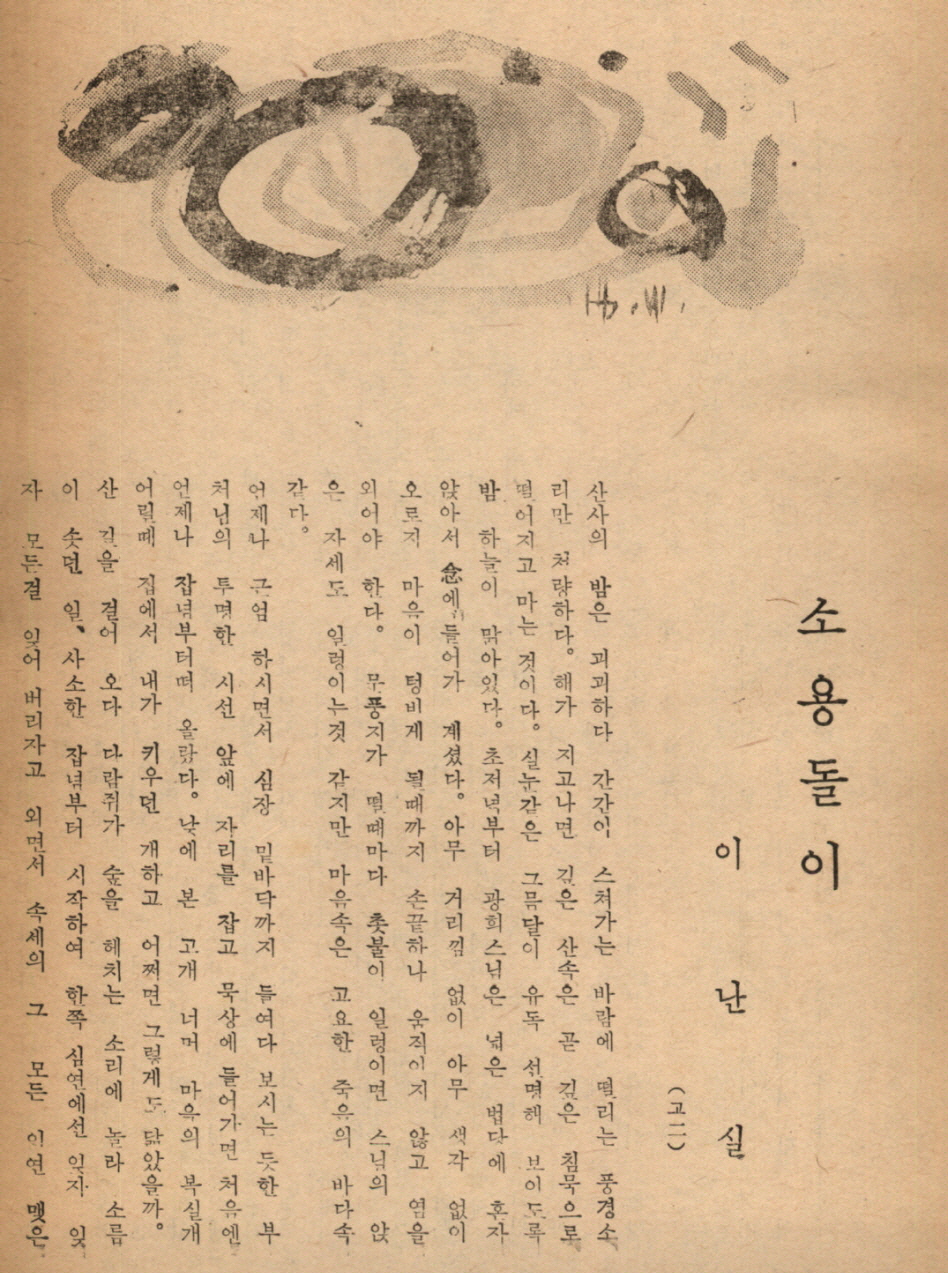 소용돌이
이난실
(고二)
산사의 밤은 괴괴하다 간간이 스쳐가는 바람에 떨리는 풍경소
리만 처량하다。해가 지고나면 깊은 산속은 곧 깊은 침묵으로
떨어지고 마는 것이다。실눈같은 그믐달이 유독 선명해 보이도록
밤 하늘이 맑아있다。초저녁부터 광희스님은 넓은 법당에 혼자
앉아서 念에 들어가 계셨다。아무 거리낌 없이 아무 생각 없이
오로지 마음이 텅비게 될때까지 손끝하나 움직이지 않고 염을
외어야 한다。 무풍지가 떨때마다 촛불이 일렁이면 스님의 앉
은 자세도 일렁이는것 같지만 마음속은 고요한 죽음의 바다속
같다。
언제나 근엄 하시면서 심장 밑바닥까지 들여다 보시는 듯한 부
처님의 투명한 시선 앞에 자리를 잡고 묵상에 들어가면 처음엔
언제나 잡념부터떠 올랐다。낮에 본 고개 너머 마을의 복실개
어릴때 집에서 내가 키우던 개하고 어쩌면 그렇게도 닮았을까。
산 길을 걸어 오다 다람쥐가 숲을 헤치는 소리에 놀라 소름
이 솟던 일、사소한 잡념부터 시작하여 한쪽 심연에선 잊자 잊
자 모든걸 잊어 버리자고 외면서 속세의 그 모든 인연 맺은
Hb.W.